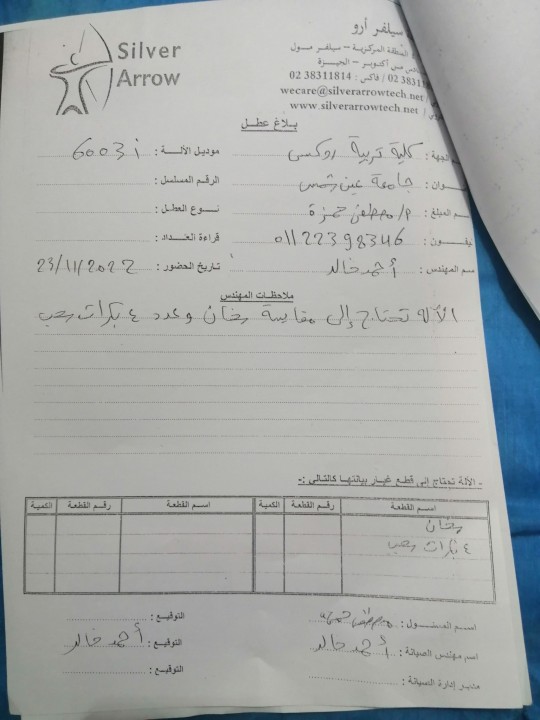 Silver
Arrow
سيلفر أرو
المنطقة المركزية – سيلفر مول
أكتوبر – الجيزة
02 38311814 : فاكس / 02 3831
wecare@silverarrowtech.net
www.silverarrowtech.net
بلاغ عطل
الجهة : كلية تربية روكسى موديل الآلة : 6003i
جامعة عين شمس الرقم المسلسل :
المبلغ : م/ مصطفى حمزة نوع العطل :
01122398346 قراءة العداد :
سم المهندس : أحمد خالد تاريخ الحضور : 23/11/2022
ملاحظات المهندس
الآلة تحتاج إلى مقايسة سخان وعدد ٤ بكرات سحب
- الآلة تحتاج إلى قطع غيار بيانتها كالتالى :-
اسم القطعة رقم القطعة الكمية اسم القطعة رقم القطعة الكمية
سخان
٤ بكرات سحب
اسم المسئول : مصطفى حمزة التوقيع :
اسم مهندس الصيانة : أحمد خالد التوقيع : أحمد خالد
مدير إدارة الصيانة : التوقيع :